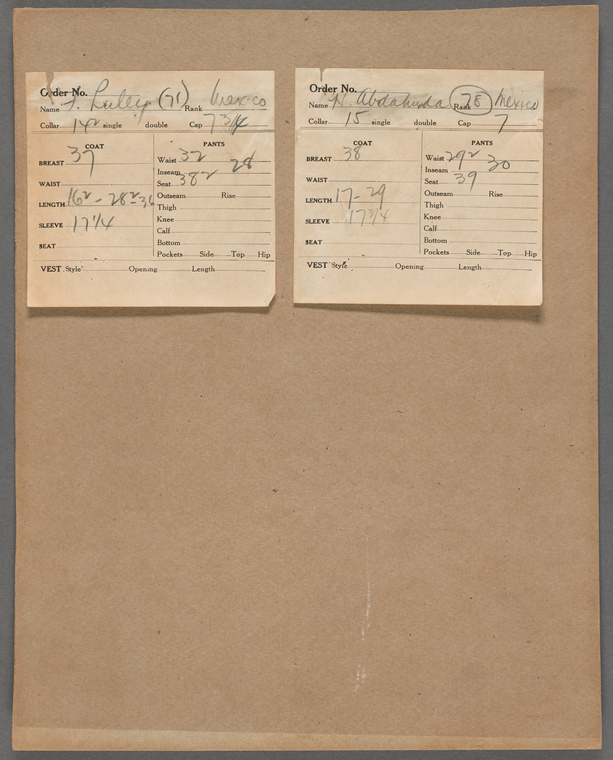 Order No.
Name F. Luley (71) Rank Mexico
Collar 14² single double Cap 7 3/4
COAT PANTS
BREAST 37 Waist 32
Inseam 28
WAIST Seat 38²
LENGTH 16² - 28² - 36 Outseam Rise
Thigh
SLEEVE 17 1/4 Knee
Calf
SEAT Bottom
Pockets Side Top Hip
VEST Style Opening Length
Order No.
Name H. Rank 78 Mexico
Collar 15 single double Cap 7
COAT PANTS
BREAST 38 Waist 29²
Inseam 30
WAIST Seat 39
LENGTH 17 - 29 Outseam Rise
Thigh
SLEEVE 17 3/4 Knee
Calf
SEAT Bottom
Pockets Side Top Hip
VEST Style Opening Length